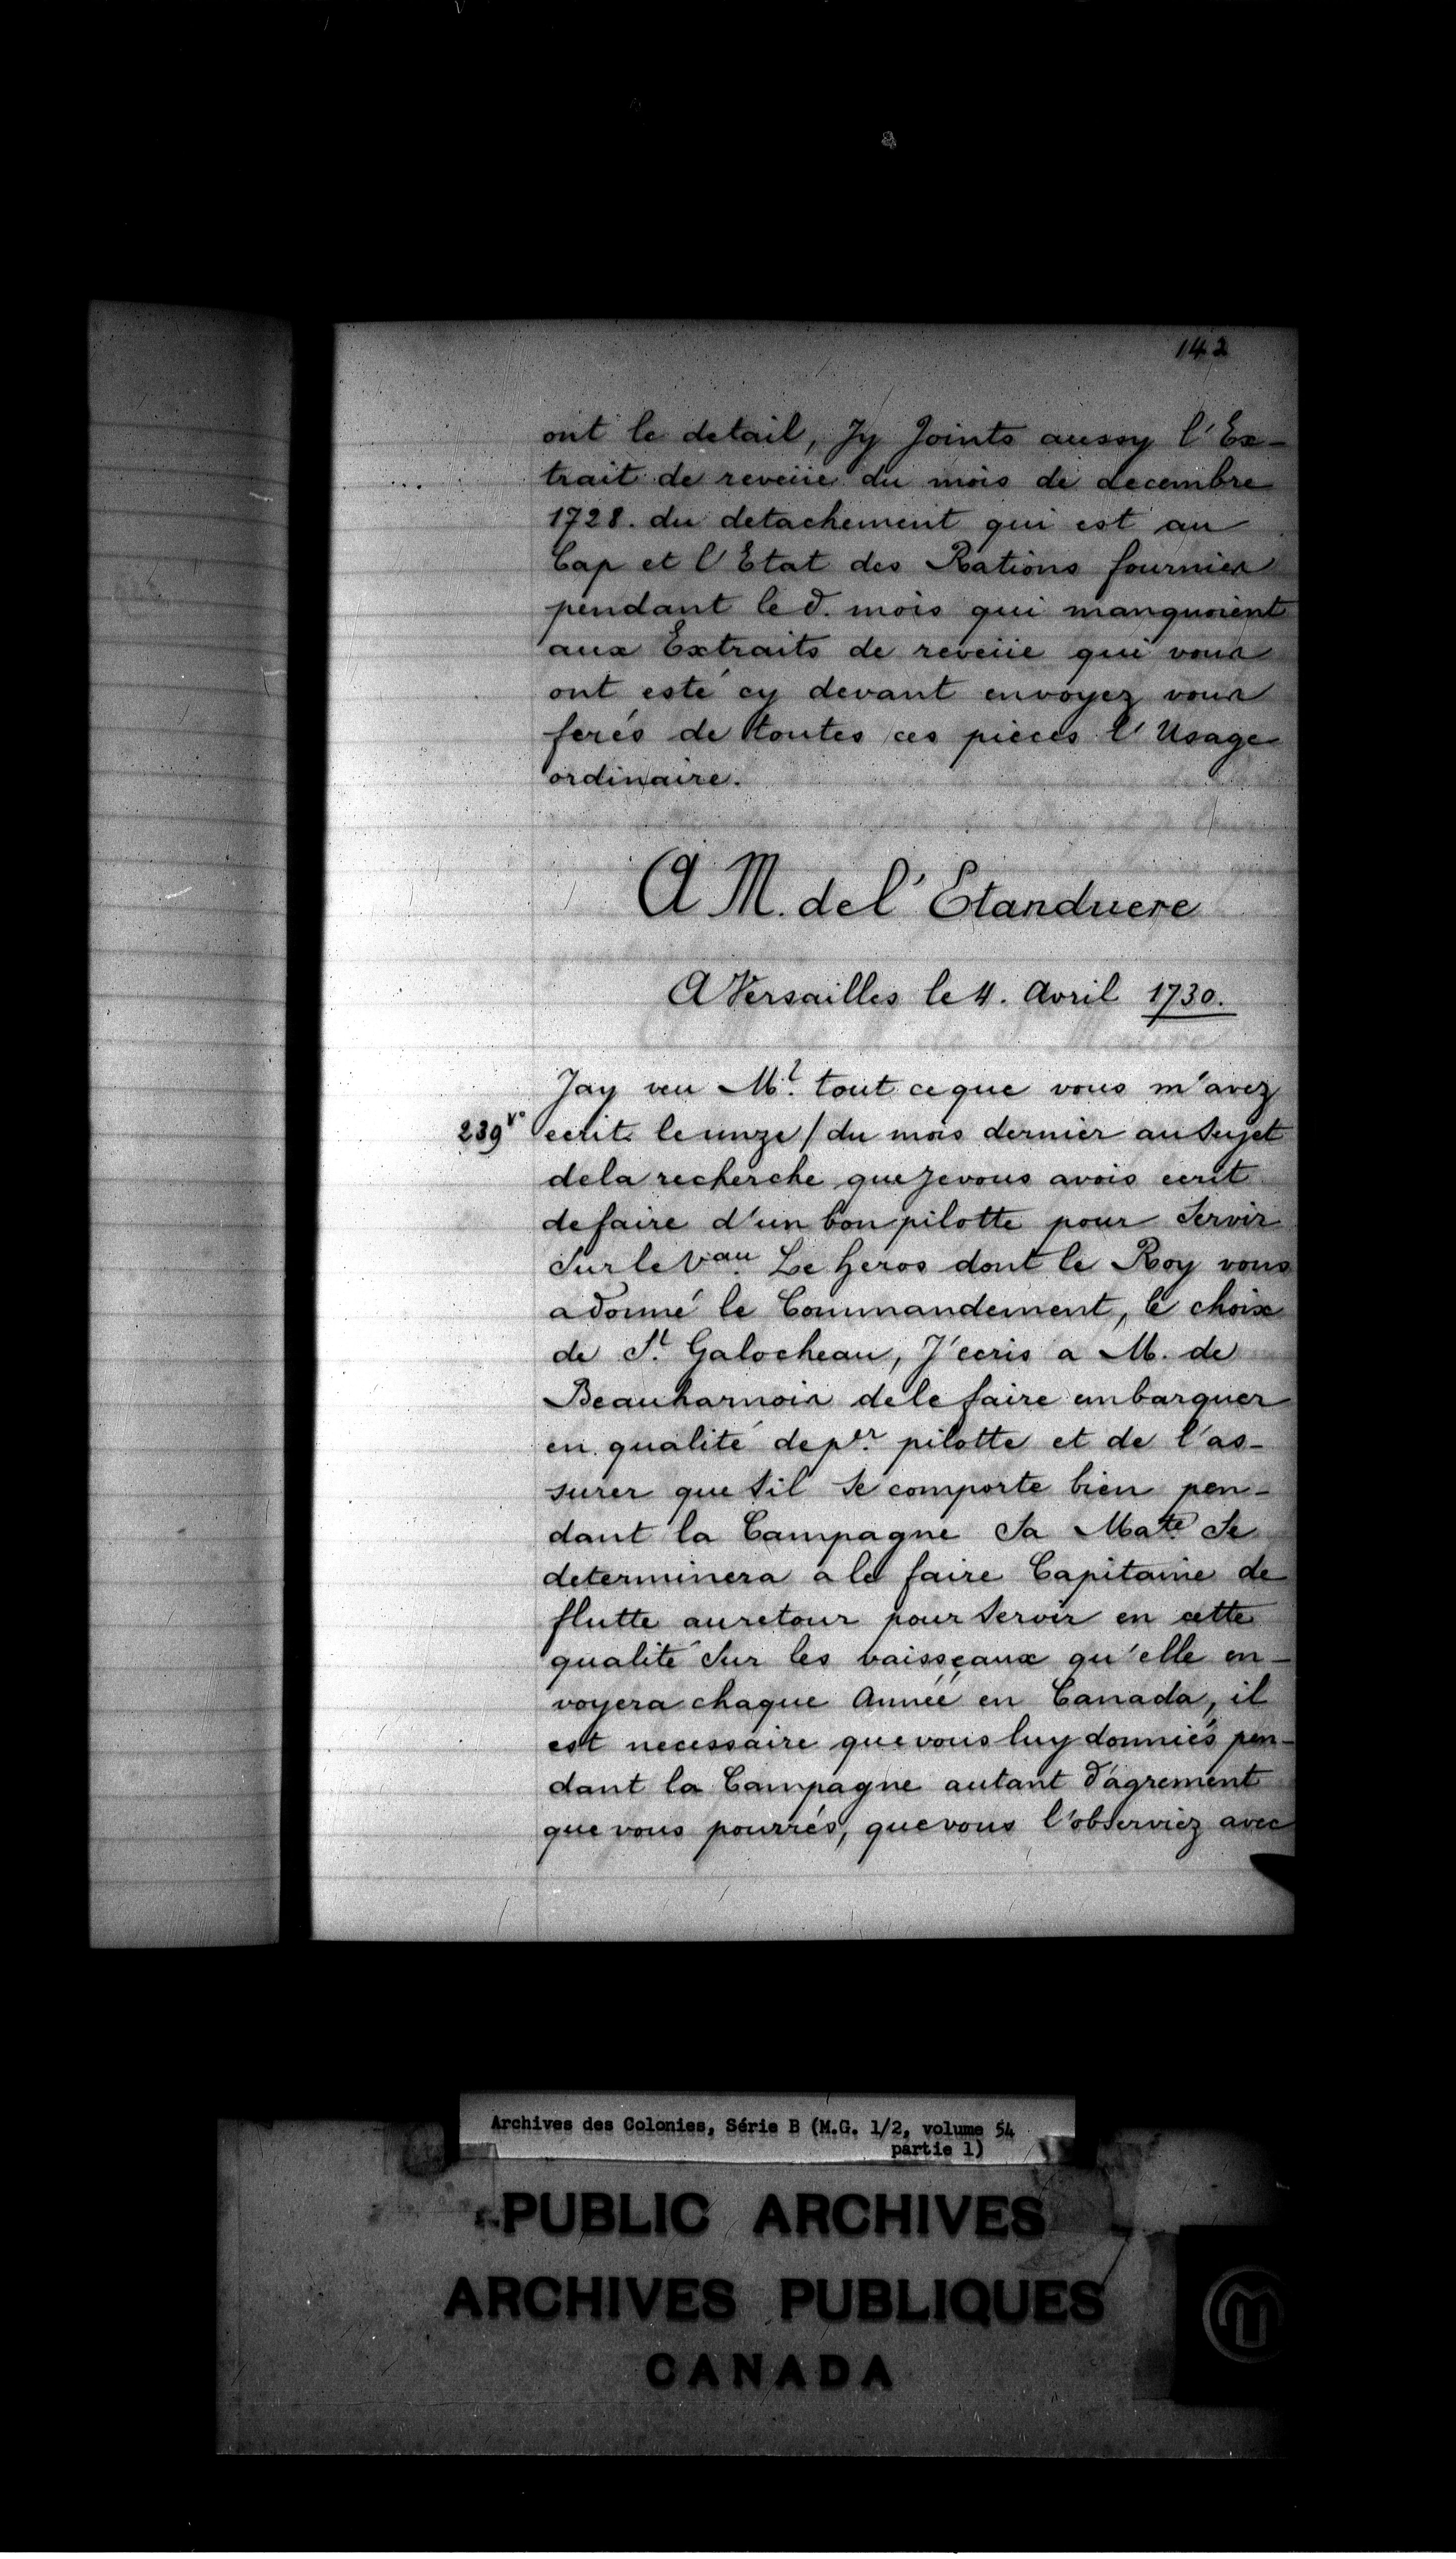 142
ont le detail, Jy Joints aussy l'Ex-
trait de reveüe du mois de decembre
1728. du detachement qui est au
Cap et l'Etat des Rations fournies
pendant le d. mois qui manquoient
aux Extraits de reveüe qui vous
ont esté cy devant envoyez vous
ferés de toutes ces pièces l'Usage
ordinaire.
A M. de l'Etanduere
A Versailles le 4. Avril 1730.
Jay veu Mr. tout ce que vous m'avez
239 vo ecrit le unze / du mois dernier au Sujet
de la recherche que Je vous avois ecrit
de faire d'un bon pilotte pour Servir
Sur le Vau. Le heros dont le Roy vous
a donné le Commandement, le choix
de St. Galocheau, J'ecris a M. de
Beauharnois de le faire embarquer
en qualité de per. pilotte et de l'as-
surer que Sil Se comporte bien pen-
dant la Campagne Sa Mate Se
determinera a le faire Capitaine de
flutte au retour pour Servir en cette
qualité Sur les vaisseaux qu'elle en-
voyera chaque Année en Canada, il
est necessaire que vous luy donniés pen-
dant la Campagne autant d'agrement
que vous pourrés, que vous l'observiez avec
Archives des Colonies, Série B (M.G. 1/2, volume 54
partie 1)
PUBLIC ARCHIVES
ARCHIVES PUBLIQUES
CANADA